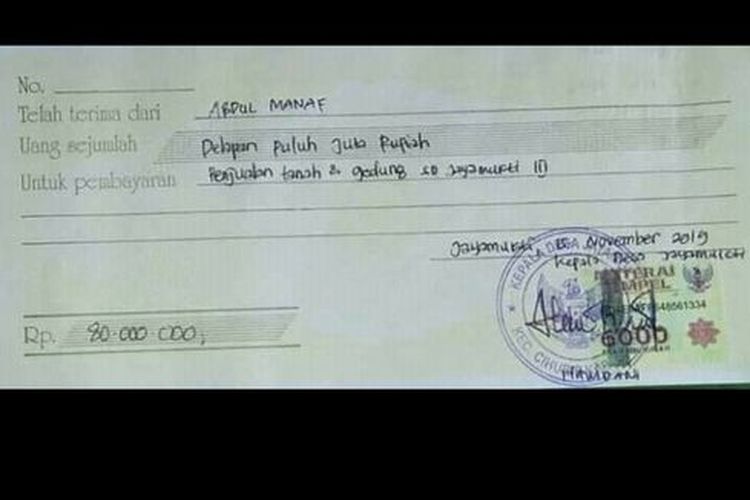 No.
Telah terima dari ABDUL MANAF
Uang sejumlah Delapan Puluh Juta Rupiah
Untuk pembayaran Penjualan tanah & gedung SD Jayamukti III
Jayamukti, November 2019
Kepala Desa Jayamukti
KEPALA DESA
METERAI
TEMPEL
648561334
6000
KEC. CIHU
HAMDANI
Rp. 80.000.000,